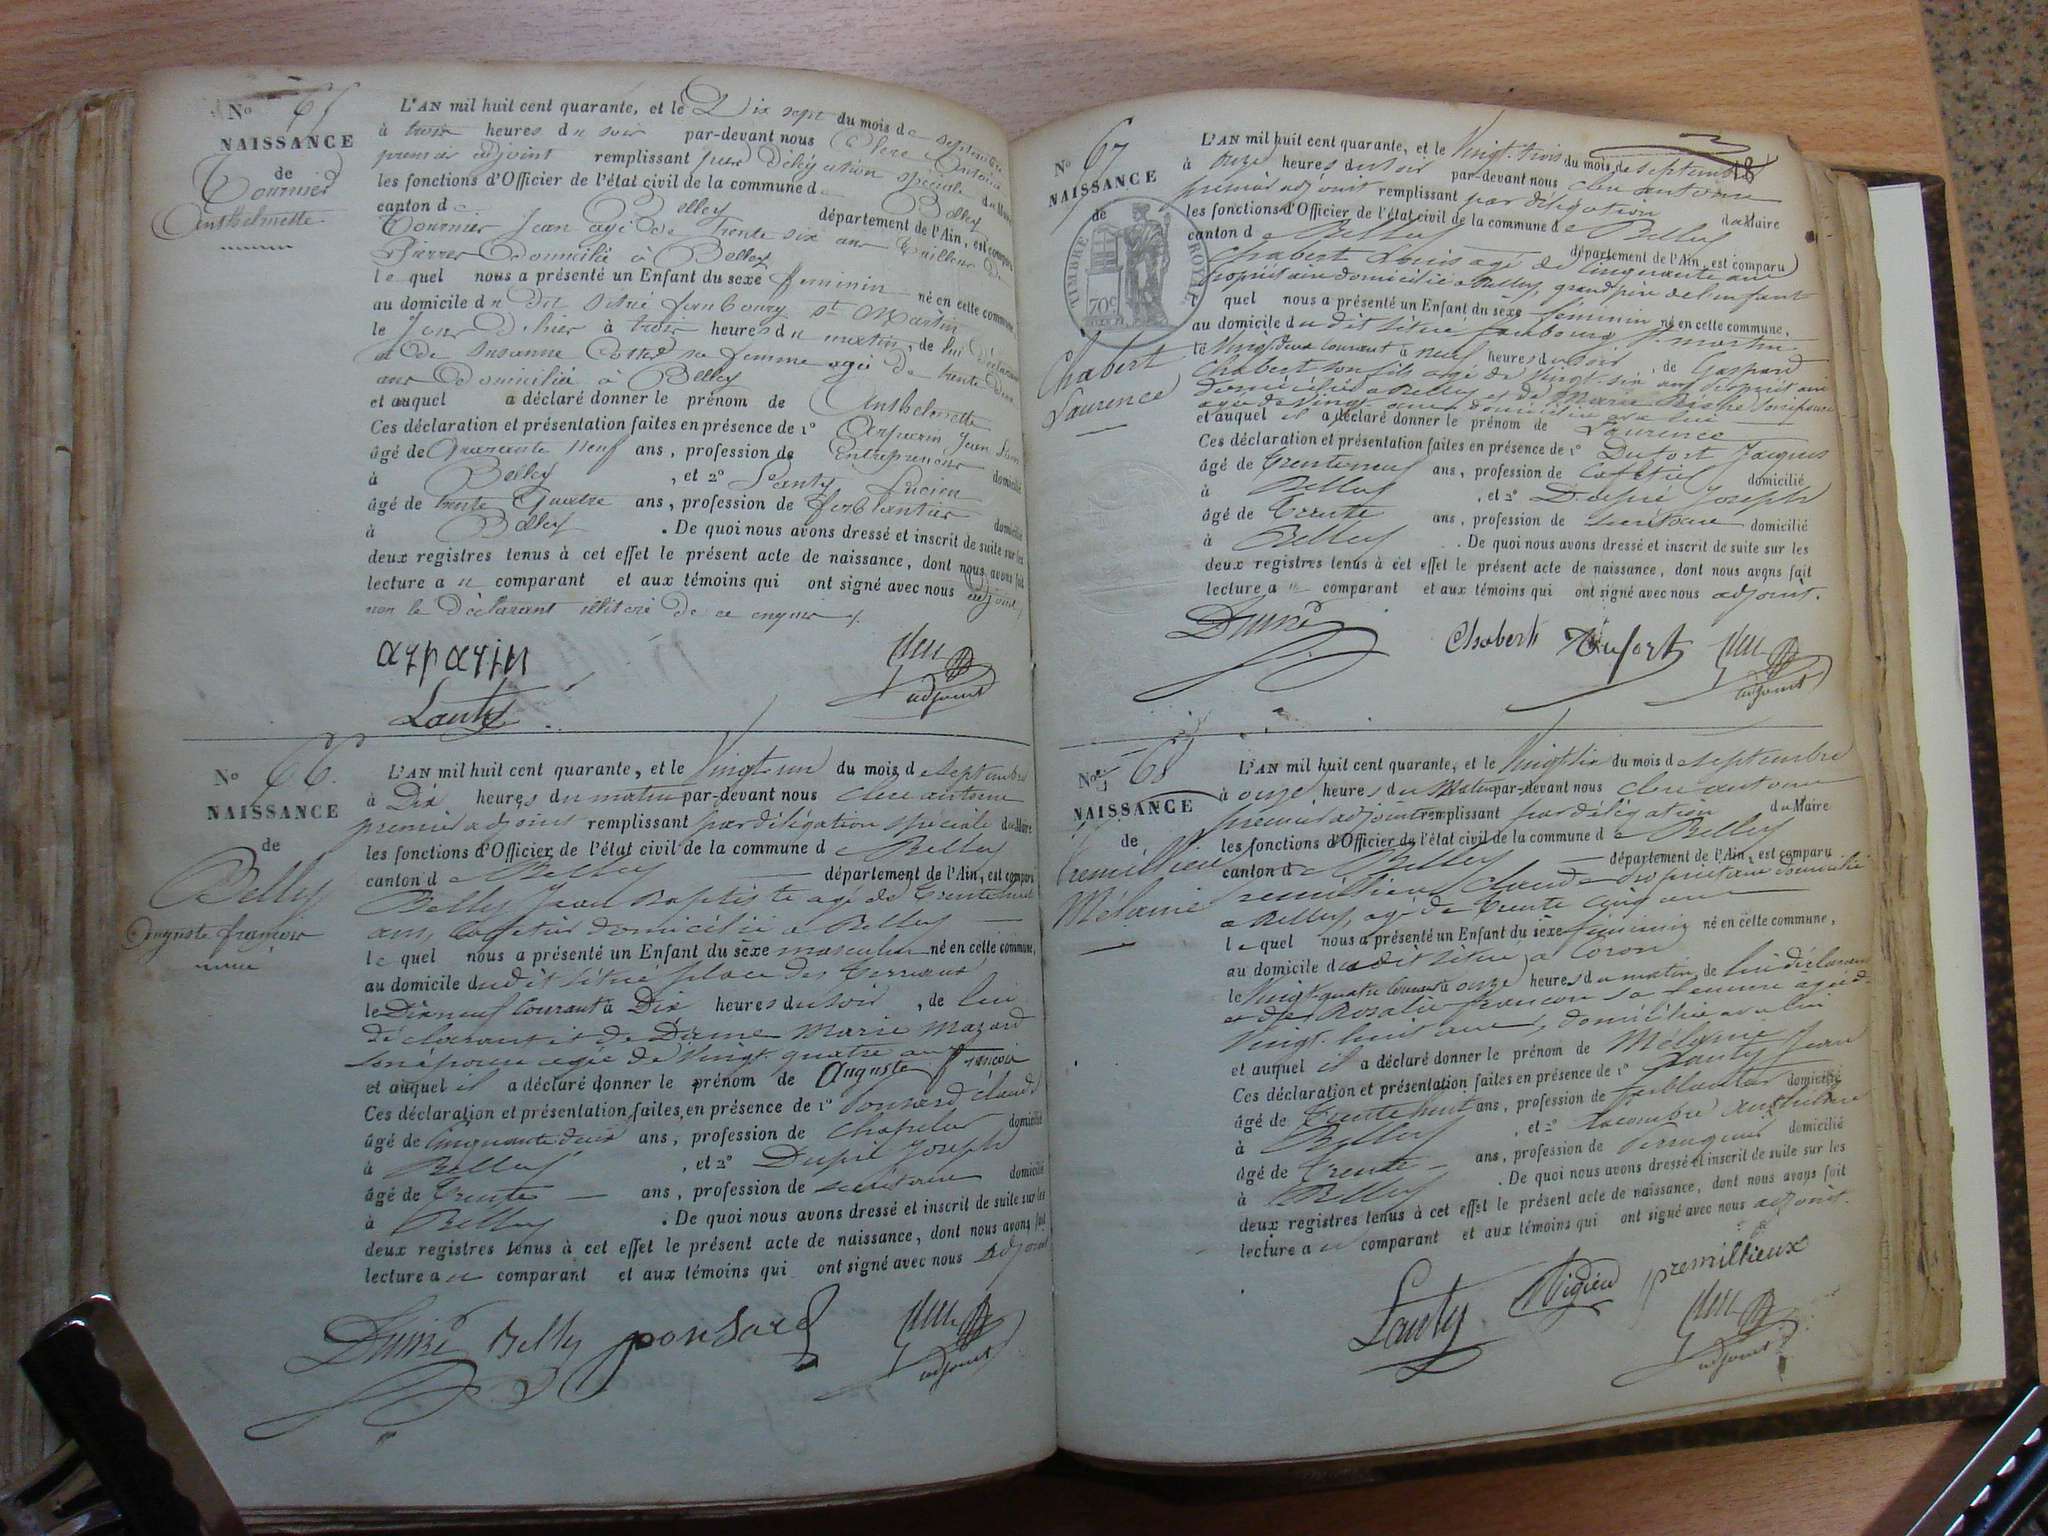 No 65
NAISSANCE
de
Tournier
Anthelmette
L'AN mil huit cent quarante, et le Dix sept du mois de septembre
à trois heures du soir par-devant nous Clerc Antoine
premier adjoint remplissant par délégation spéciale du Maire
les fonctions d'Officier de l'état civil de la commune de Belley
canton de Belley département de l'Ain, est comparu
Tournier Jean agé de trente six ans tailleur de
Pierres domicilié à Belley
lequel nous a présenté un Enfant du sexe feminin né en cette commune,
au domicile du dit situé faubourg St Martin
le jour d'hier à trois heures du matin, de lui déclarant
et de Susanne sa femme agée de trente deux
ans domiciliée à Belley
et auquel a déclaré donner le prénom de Anthelmette
Ces déclaration et présentation faites en présence de 1º Arparin Jean
âgé de Quarante neuf ans, profession de Entrepreneur domicilié
à Belley, et 2º Lanty Lucien
âgé de trente Quatre ans, profession de ferblantier domicilié
à Belley. De quoi nous avons dressé et inscrit de suite sur les
deux registres tenus à cet effet le présent acte de naissance, dont nous avons fait
lecture au comparant et aux témoins qui ont signé avec nous adjoint,
non le déclarant illitéré de ce enquis
arparin
Clerc
adjoint
Lanty
No 66.
NAISSANCE
de
Belley
auguste françois
L'AN mil huit cent quarante, et le Vingt-un du mois de septembre
à Dix heures du matin par-devant nous clerc antoine
premier adjoint remplissant par délégation spéciale du Maire
les fonctions d'Officier de l'état civil de la commune de Belley
canton de Belley département de l'Ain, est comparu
Belley Jean Baptiste agé de trente huit
ans, cafetier domicilié a Belley
lequel nous a présenté un Enfant du sexe masculin né en cette commune,
au domicile du dit situé place des Terreaux
le Dix neuf courant à Dix heures du soir, de lui
déclarant et de Dame Marie Mazard
son épouse agée de Vingt quatre ans
et auquel il a déclaré donner le prénom de Auguste françois
Ces déclaration et présentation faites en présence de 1º Ponsard claude
âgé de Cinquante deux ans, profession de chapelier domicilié
à Belley, et 2º Dupré Joseph
âgé de Trente ans, profession de secrétaire domicilié
à Belley. De quoi nous avons dressé et inscrit de suite sur les
deux registres tenus à cet effet le présent acte de naissance, dont nous avons fait
lecture au comparant et aux témoins qui ont signé avec nous adjoint
Dupré Belley ponsard Clerc
adjoint
18
No 67
NAISSANCE
de
TIMBRE ROYAL
70c
Chabert
Laurence
L'AN mil huit cent quarante, et le Vingt-trois du mois de septembre
à onze heures du soir par-devant nous clerc antoine
premier adjoint remplissant par délégation du Maire
les fonctions d'Officier de l'état civil de la commune de Belley
canton de Belley département de l'Ain, est comparu
Chabert Louis agé de Cinquante ans
propriétaire domicilié a Belley, grand père de l'enfant
l quel nous a présenté un Enfant du sexe feminin né en cette commune,
au domicile du dit situé faubourg St martin
le Vingt deux courant à neuf heures du soir, de Gaspard
Chabert son fils agé de Vingt-six ans propriétaire
domicilié a Belley et de Marie son épouse
agée de Vingt ans domiciliée avec lui
et auquel il a déclaré donner le prénom de Laurence
Ces déclaration et présentation faites en présence de 1º Dufort Jacques
âgé de trente neuf ans, profession de Cafetier domicilié
à Belley, et 2º Dupré Joseph
âgé de Trente ans, profession de secrétaire domicilié
à Belley. De quoi nous avons dressé et inscrit de suite sur les
deux registres tenus à cet effet le présent acte de naissance, dont nous avons fait
lecture au comparant et aux témoins qui ont signé avec nous adjoint.
Dupré Chabert Dufort Clerc
adjoint
No 68
NAISSANCE
de
Premillieu
Mélanie
L'AN mil huit cent quarante, et le Vingt six du mois de septembre
à onze heures du Matin par-devant nous clerc antoine
premier adjoint remplissant par délégation du Maire
les fonctions d'Officier de l'état civil de la commune de Belley
canton de Belley département de l'Ain, est comparu
Premillieu Claude propriétaire domicilié
a Belley, agé de trente cinq ans
lequel nous a présenté un Enfant du sexe feminin né en cette commune,
au domicile du dit situé a Coron
le Vingt-quatre courant à onze heures du matin, de lui déclarant
et de Rosalie françon sa femme agée de
Vingt-huit ans, domiciliée avec lui
et auquel il a déclaré donner le prénom de Melanie
Ces déclaration et présentation faites en présence de 1º Lanty Jean
âgé de Trente huit ans, profession de ferblantier domicilié
à Belley, et 2º anthelme
âgé de Trente ans, profession de perruquier domicilié
à Belley. De quoi nous avons dressé et inscrit de suite sur les
deux registres tenus à cet effet le présent acte de naissance, dont nous avons fait
lecture au comparant et aux témoins qui ont signé avec nous adjoint.
Lanty premillieux
Clerc
adjoint